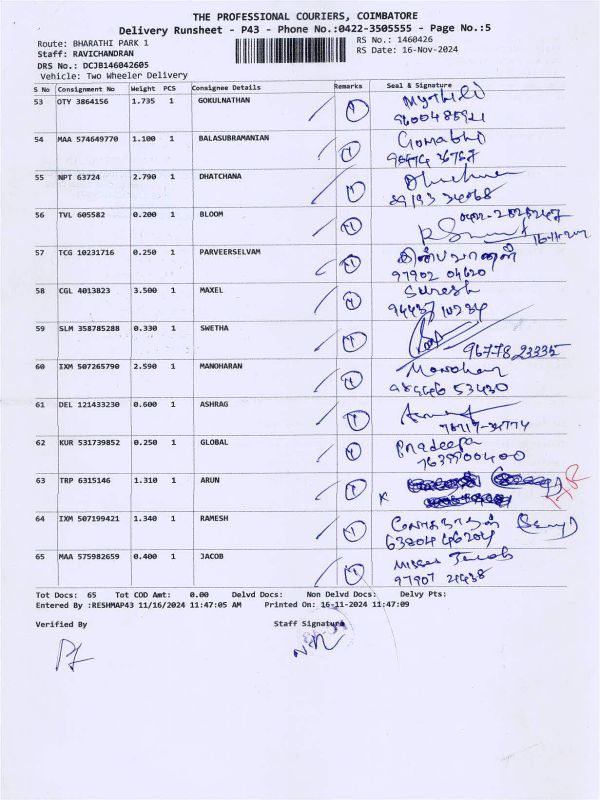 THE PROFESSIONAL COURIERS, COIMBATORE
Delivery Runsheet - P43 - Phone No.:0422-3505555 - Page No.:5
Route: BHARATHI PARK 1
RS No.: 1460426
Staff: RAVICHANDRAN
RS Date: 16-Nov-2024
DRS No.: DCJB146042605
Vehicle: Two Wheeler Delivery
S No Consignment No Weight PCS Consignee Details Remarks Seal & Signature
53 OTY 3864156 1.735 1 GOKULNATHAN Mythili
9600485921
54 MAA 574649770 1.100 1 BALASUBRAMANIAN
55 NPT 63724 2.790 1 DHATCHANA
56 TVL 605582 0.200 1 BLOOM
57 TCG 10231716 0.250 1 PARVEERSELVAM
97902 04620
58 CGL 4013823 3.500 1 MAXEL Suresh
94437 10234
59 SLM 358785288 0.330 1 SWETHA
96778 23335
60 IXM 507265790 2.590 1 MANOHARAN Manohar
61 DEL 121433230 0.600 1 ASHRAG
62 KUR 531739852 0.250 1 GLOBAL Pradeepa
7639900400
63 TRP 6315146 1.310 1 ARUN
64 IXM 507199421 1.340 1 RAMESH
63804 46204
65 MAA 575982659 0.400 1 JACOB Jacob
Tot Docs: 65 Tot COD Amt: 0.00 Delvd Docs: Non Delvd Docs: Delvy Pts:
Entered By :RESHMAP43 11/16/2024 11:47:05 AM Printed On: 16-11-2024 11:47:09
Verified By Staff Signature